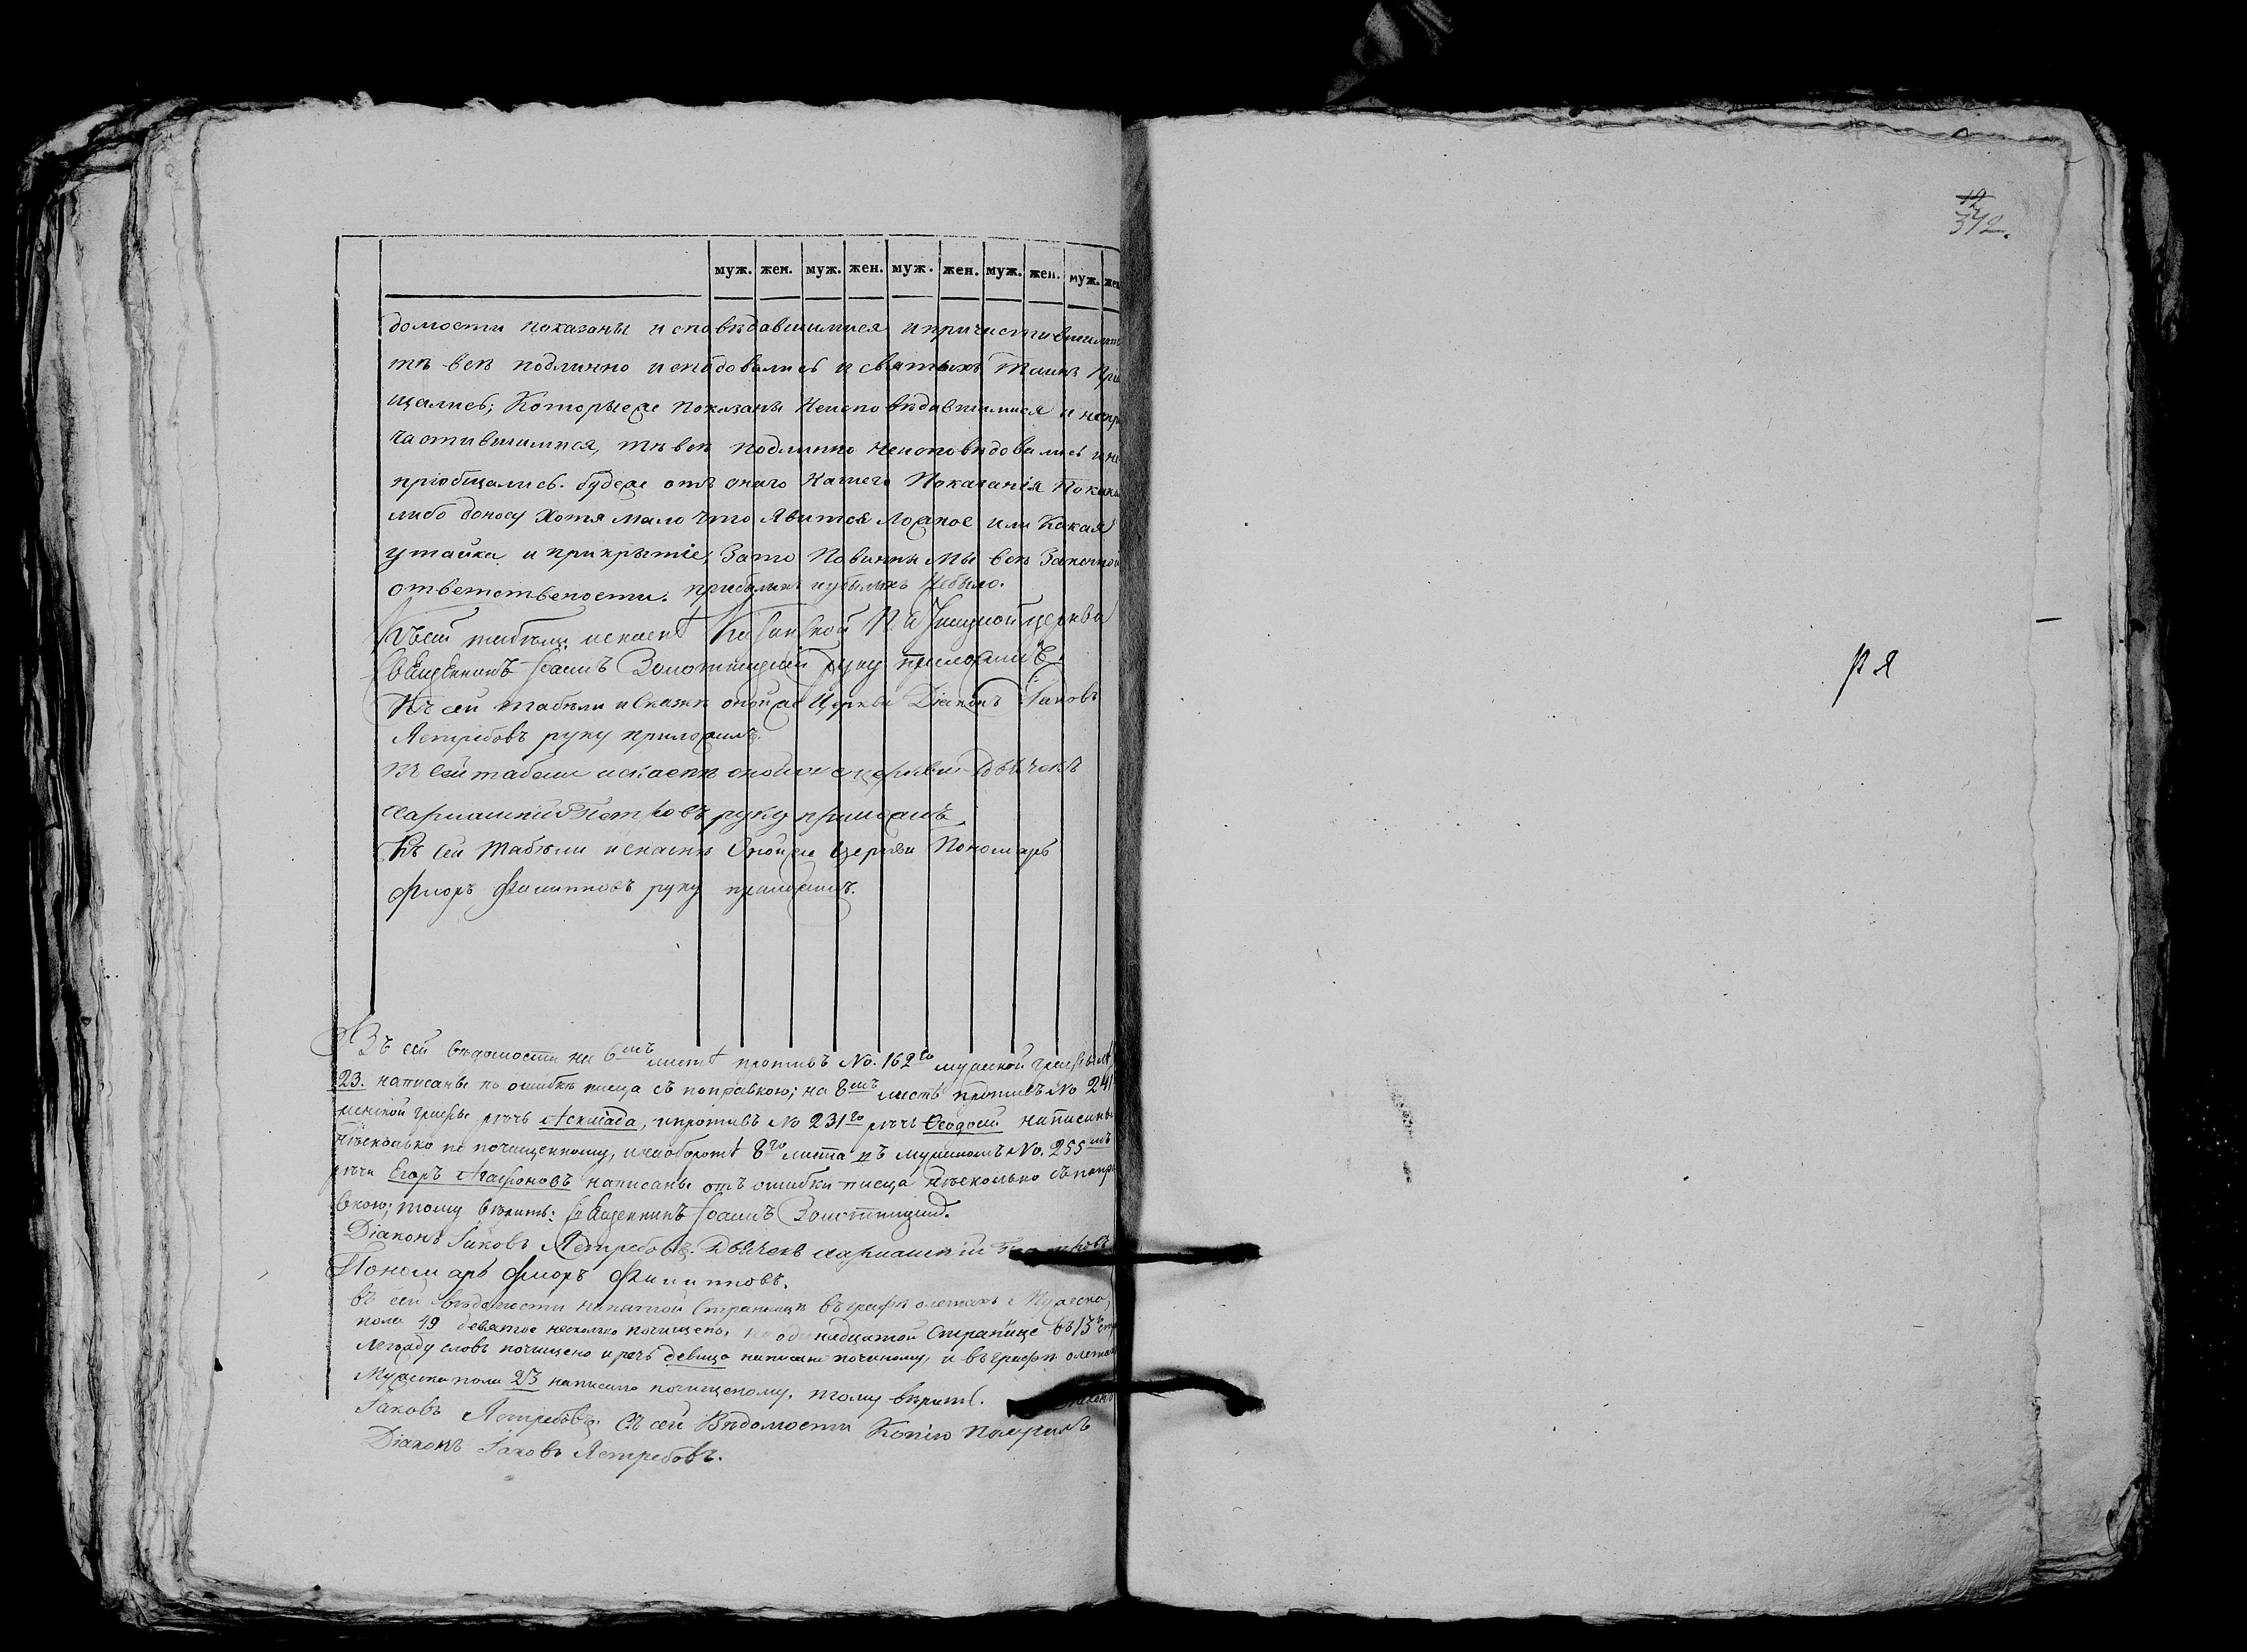 муж. жен. муж. жен. муж. жен. муж. жен. муж. жен
домости показаны исповѣдавшимися и причастившими
тѣ всѣ подлинно исповѣдовались и святыхъ Таинъ При
щались; Которыеже показаны Неисповѣдавшимися и непри
частившимися, тѣ всѣ подлинно неисповѣдовались ине
пріобщались. будеже отъ онаго Нашего Показанія Покакому
либо доносу Хотя мало что явится ложное или Какая
утайка и прикрытіе, Зато Повинны Мы всѣ Законной
ответственности. прибылыхъ иубылыхъ Небыло.
Къ сей табели искаскѣ церкви
Священникъ Іоаннъ Золотницкій руку приложилъ.
Къ сей табѣли искаскѣ онойже Церкви Діаконъ Іаковъ
Ястребовъ руку приложилъ.
Къ сей табели искаскѣ онойже церкви Дьячекъ
Петровъ руку приложилъ
Къ Сей Табѣли искаскѣ Онойже Церкви Пономарь
Флоръ Филипповъ руку приложилъ.
Въ сей вѣдомости на 6мъ листѣ противъ No. 162го мужеской графы
23. написаны по ошибкѣ писца съ поправкою; на 8мъ листѣ противъ No 241
женской графы рѣчь, ипротивъ No 231го рѣчь Ѳеодосій написаны
нѣсколько по почищенному, инаоборотѣ 8го листа въ мужескомъ No. 255мъ
рѣчи Егоръ Агафоновъ написаны отъ ошибки писца нѣсколько съ попра
вкою; тому вѣрить: Священникъ Іоаннъ Золотницкій.
Діаконъ Іаковъ Ястребовъ. Дьячекъ Петровъ
Пономарь Флоръ Филипповъ.
въ сей вѣдомости напятой Страницѣ въграфѣ олетахъ Мужеска
пола 19 девятое несколько почищено, на одинадцатой Странице въ 13й
словъ почищено и речь девица написана почищеному, и въ графѣ олетахъ
Мужеска пола 23 написано почищеному, тому вѣрить.
Іаковъ Ястребовъ. Съ сей Вѣдомости Копію Получилъ
Діаконъ Іаковъ Ястребовъ.
12
372.